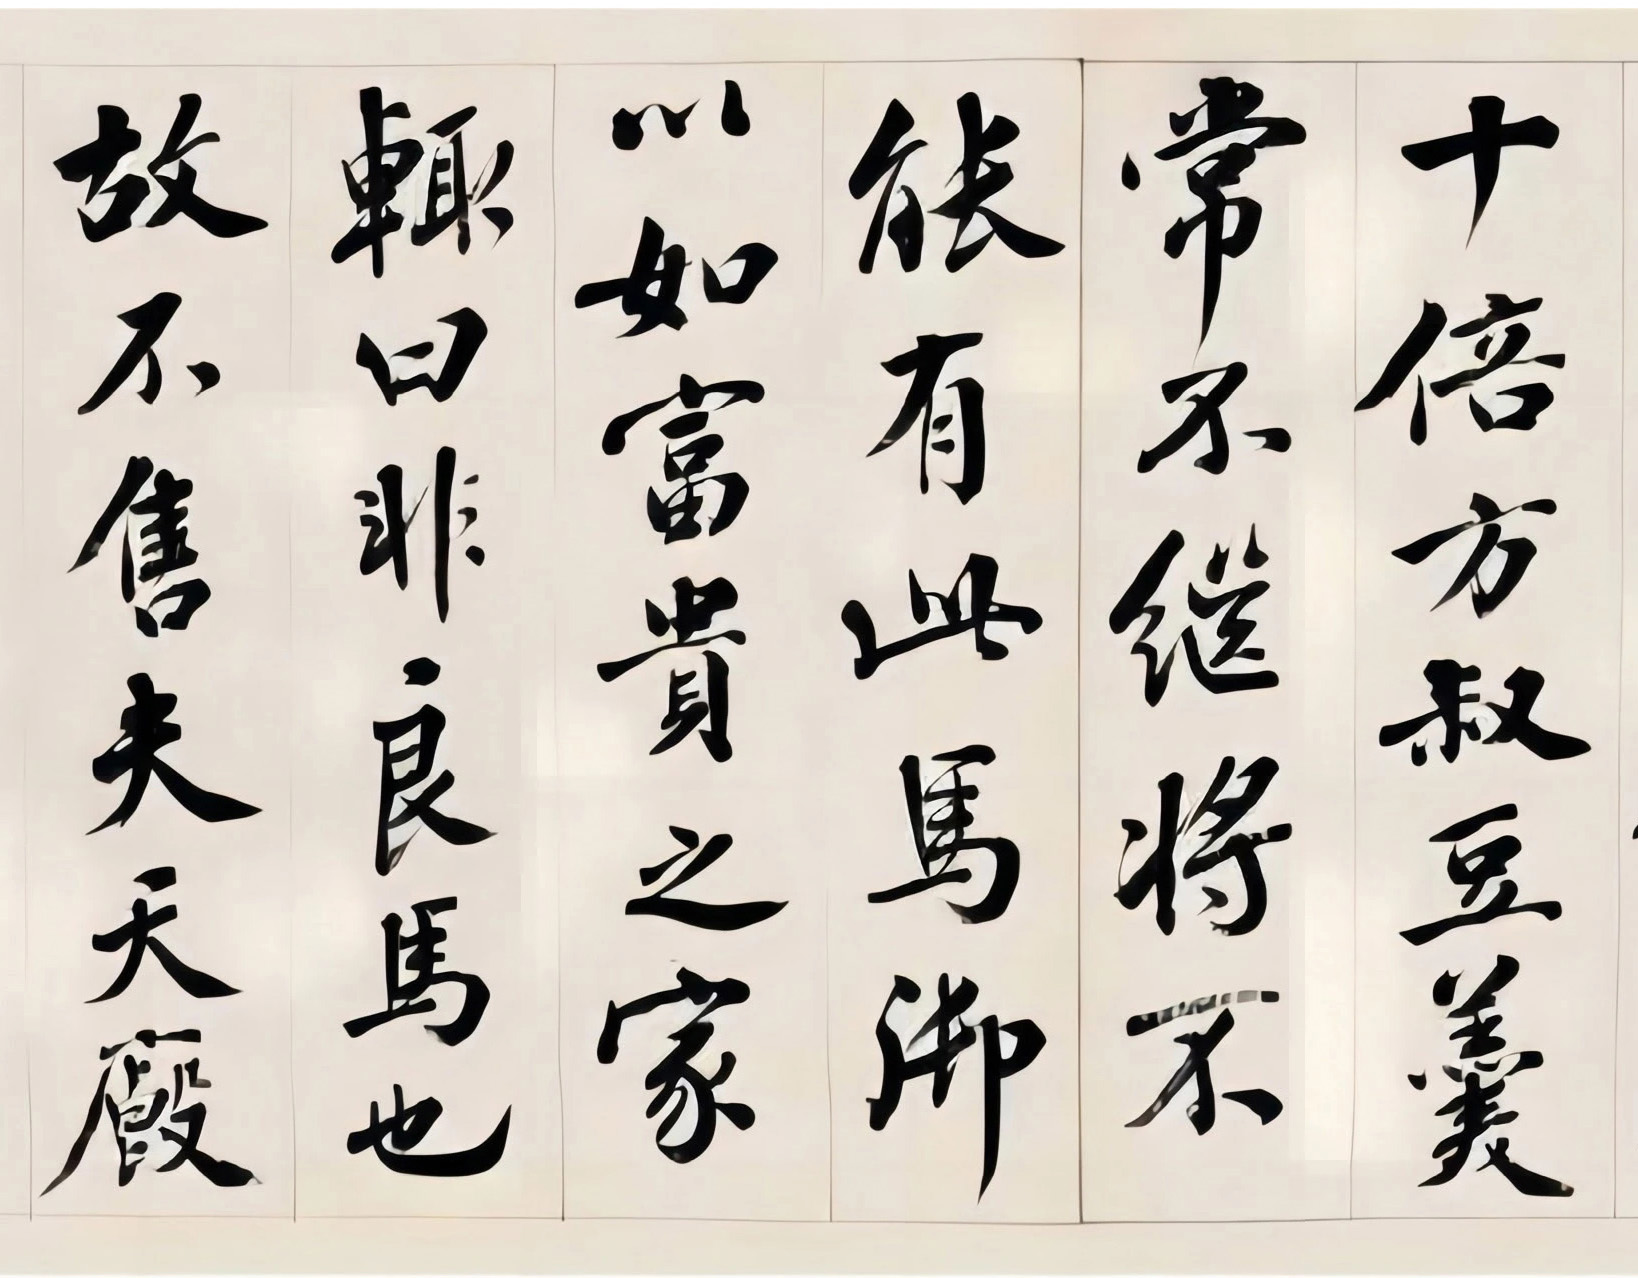 十倍方叔豆羹
常不继将不
能有此马御
以如富貴之家
輙曰非良馬也
故不售夫天廄